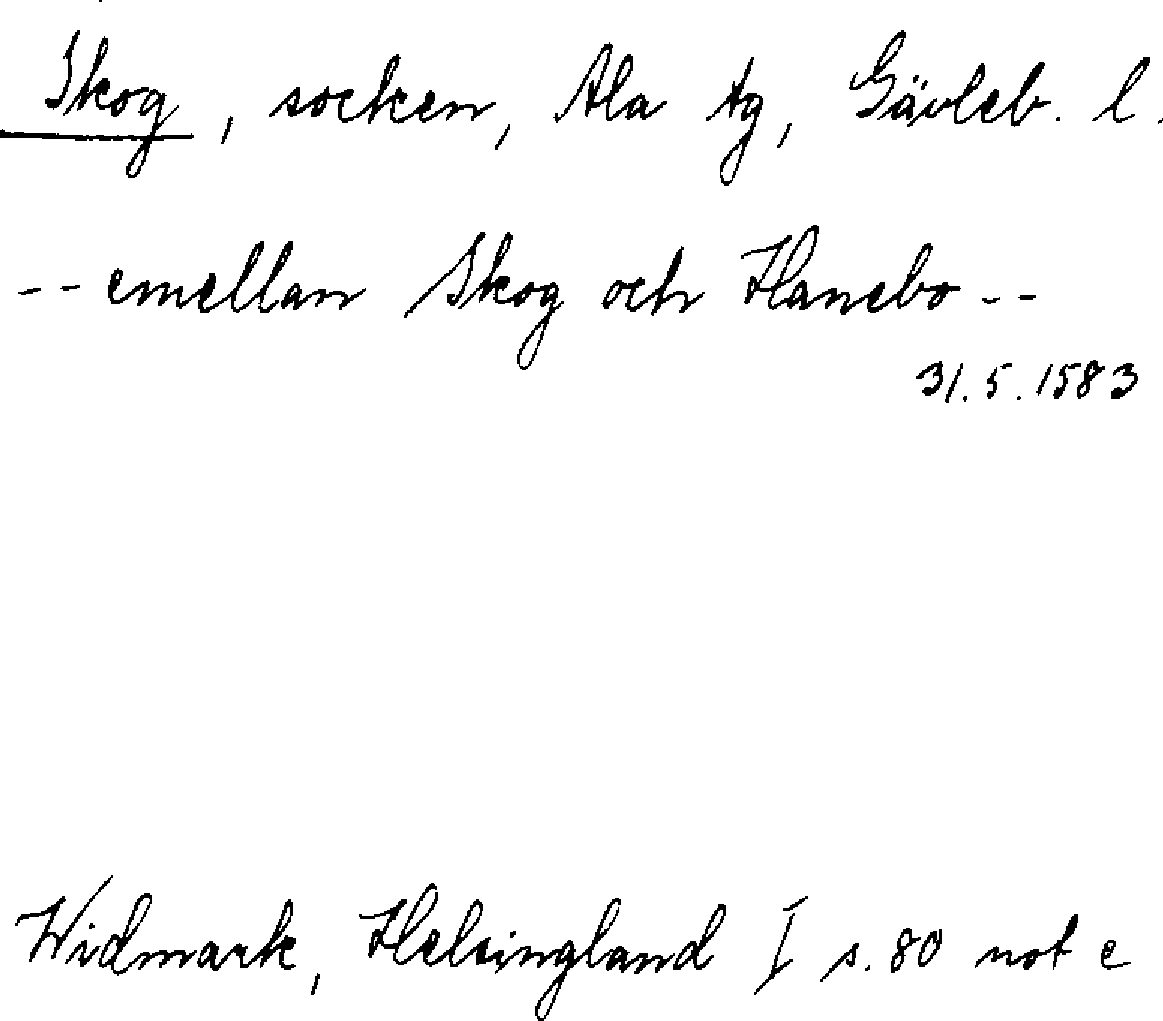 Skog, socken, Ala tg, Gävleb. l.
-- emellan Skog och Hanebo --
31.5.1583
Widmark, Helsingland I s. 80 not c